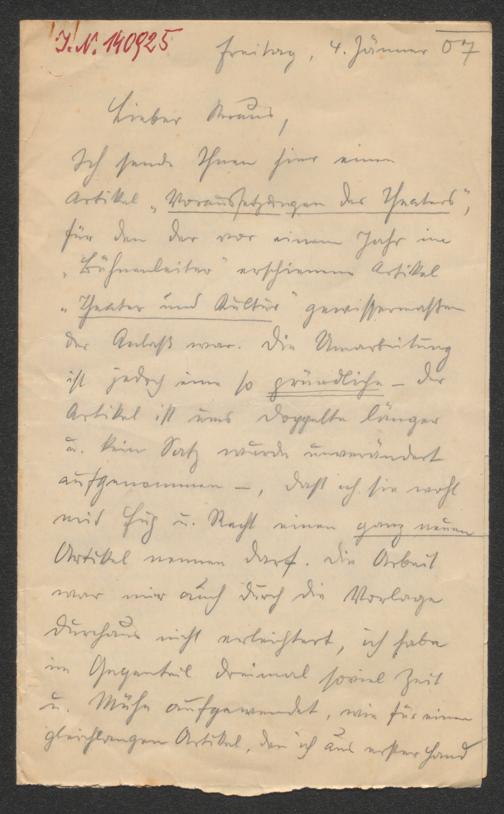 J. N. 140925
Freitag, 4. Jänner 07
Lieber Kraus,
Ich sende Ihnen hier einen
Artikel „Voraussetzungen des Theaters“,
für den der vor einem Jahr im
„Bühnenleiter“ erschienene Artikel
„Theater und Kultur“ gewissermaßen
der Anlaß war. Die Umarbeitung
ist jedoch eine so gründliche – der
Artikel ist ums doppelte länger
u. kein Satz wurde unverändert
aufgenommen –, daß ich sie wohl
mit Fug u. Recht einen ganz neuen
Artikel nennen darf. Die Arbeit
war mir auch durch die Vorlage
durchaus nicht erleichtert, ich habe
im Gegenteil dreimal soviel Zeit
u. Mühe aufgewendet, wie für einen
gleichlangen Artikel, den ich aus erster Hand